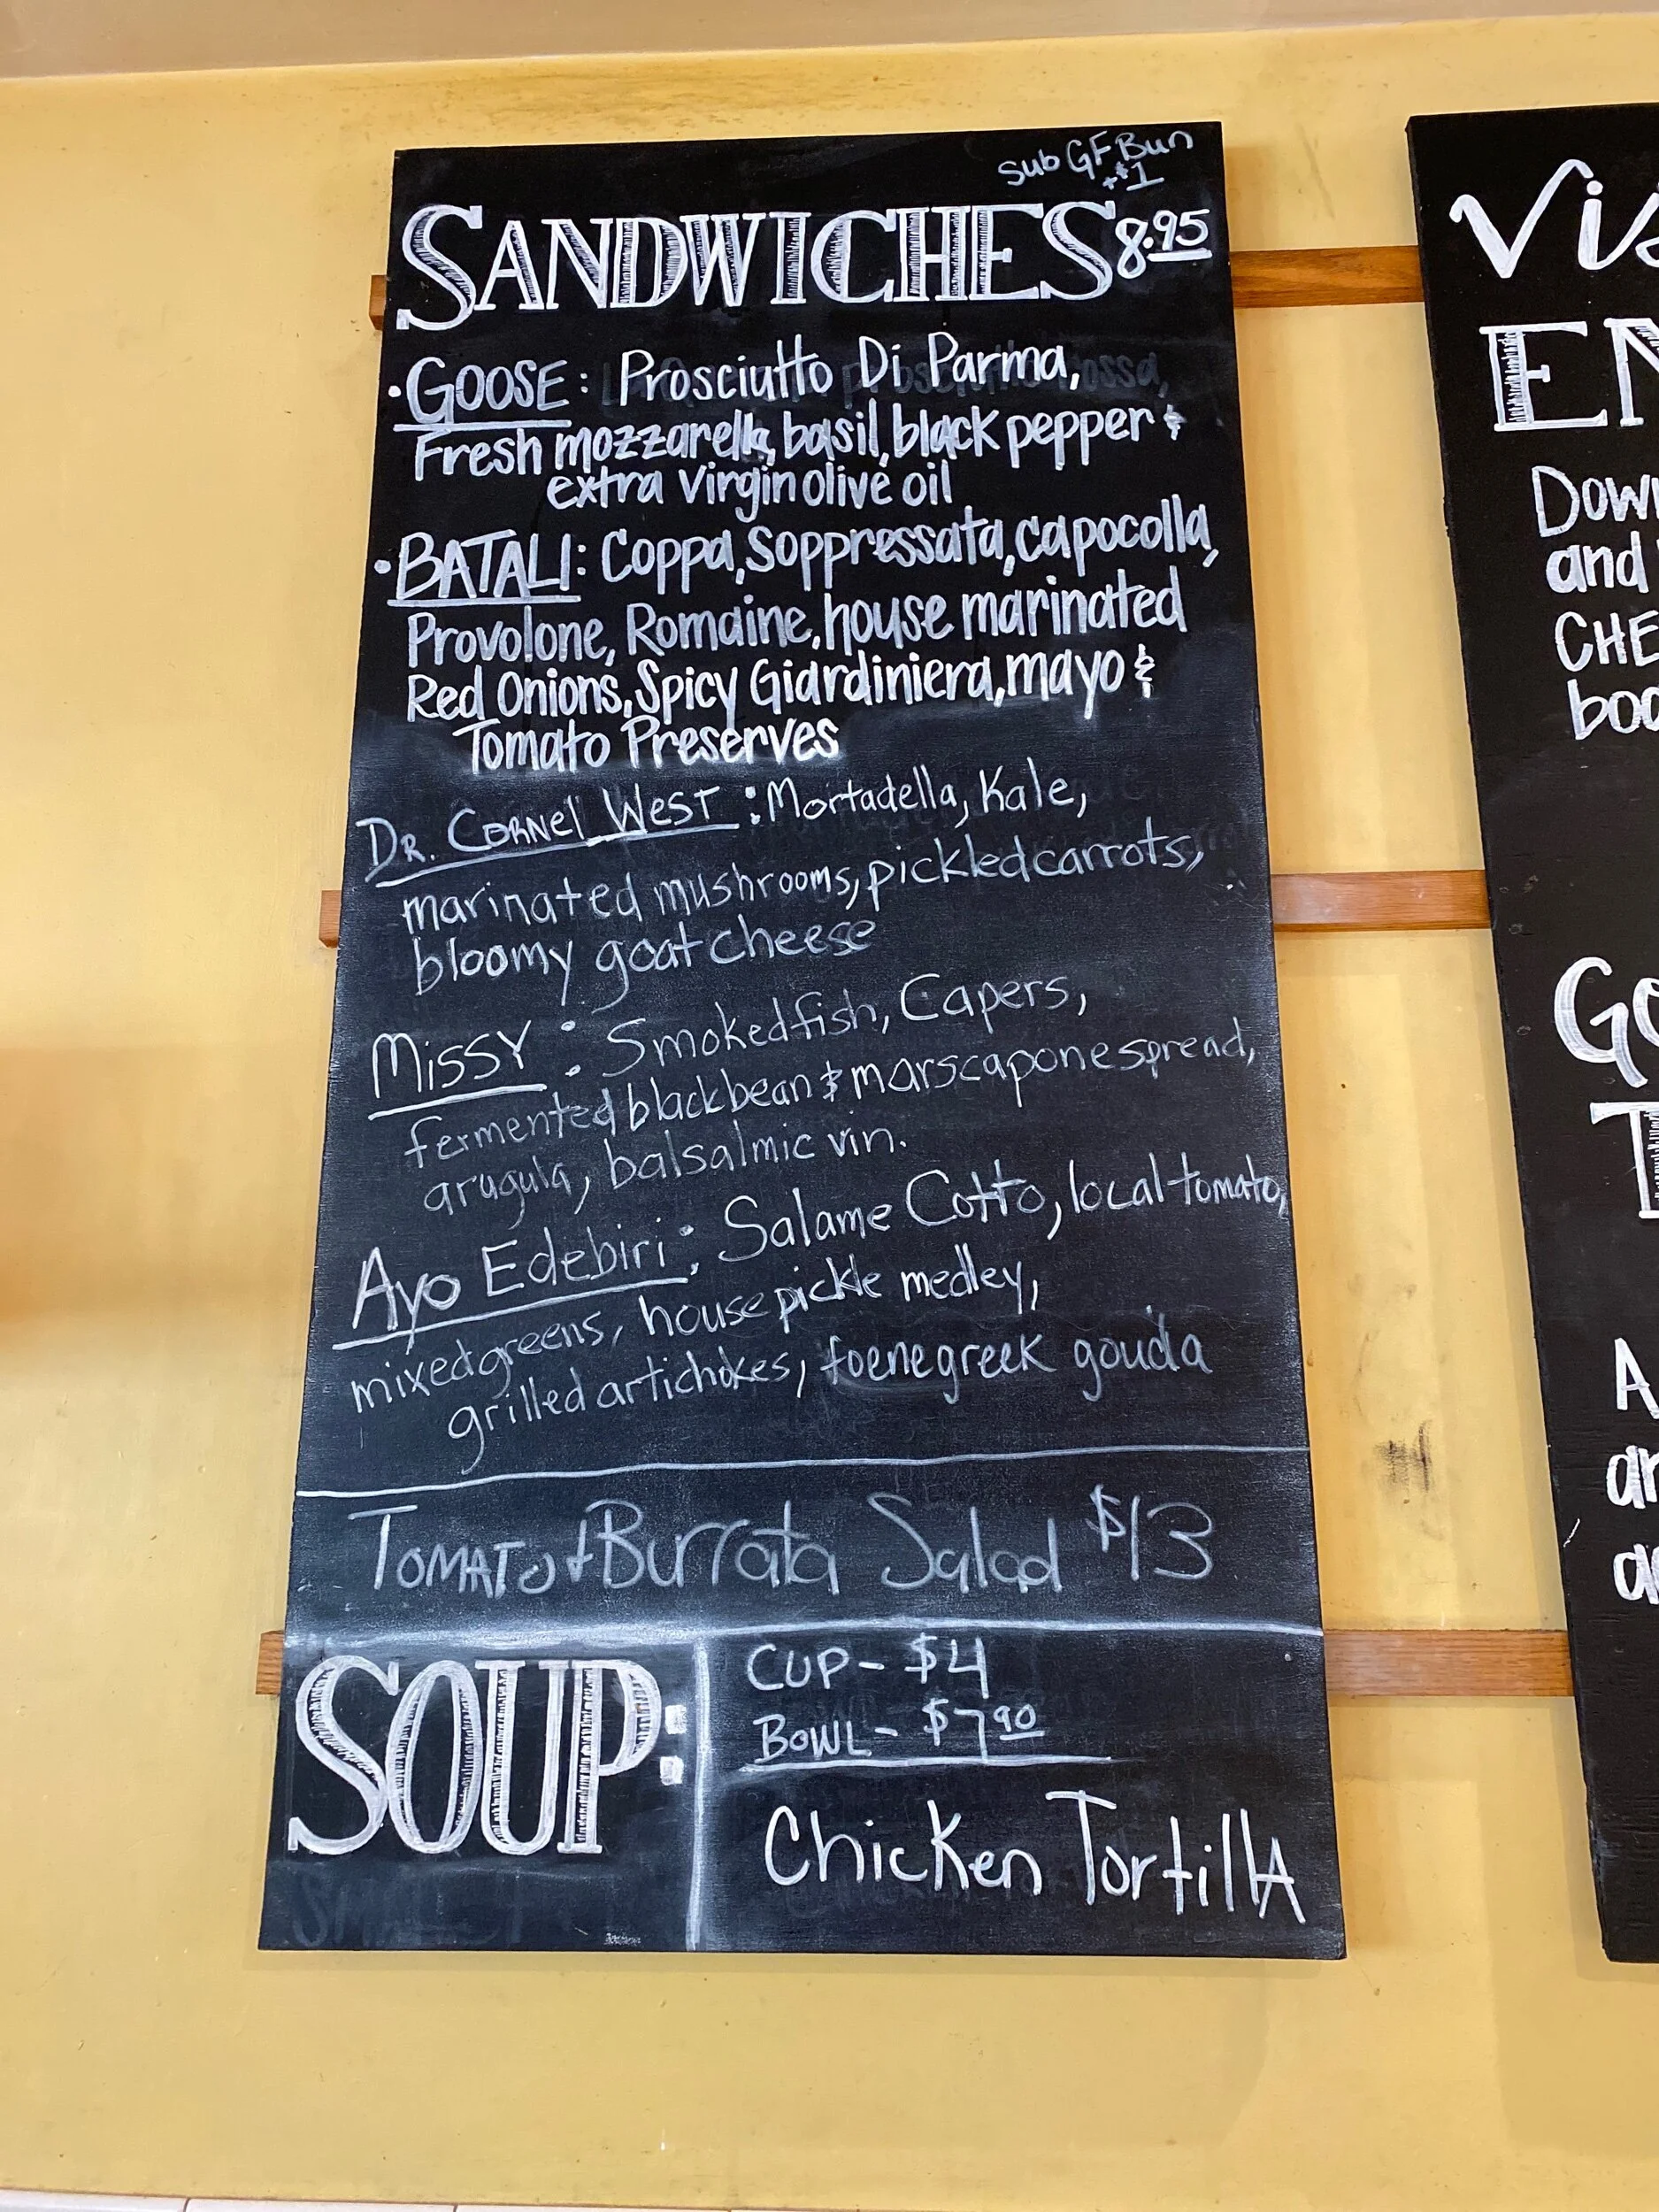 Sub GF Bun
+$1
SANDWICHES 8.95
• GOOSE: Prosciutto Di Parma,
Fresh mozzarella, basil, black pepper &
extra virgin olive oil
• BATALI: Coppa, Soppressata, capocolla,
Provolone, Romaine, house marinated
Red Onions, Spicy Giardiniera, mayo &
Tomato Preserves
DR. CORNEl WEST: Mortadella, Kale,
marinated mushrooms, pickled carrots,
bloomy goat cheese
MISSY: Smoked fish, Capers,
fermented black bean & marscapone spread,
arugula, balsalmic vin.
Ayo Edebiri: Salame Cotto, local tomato,
mixed greens, house pickle medley,
grilled artichokes, foenegreek gouda
TOMATO + Burrata Salad $13
SOUP:
CUP - $4
BOWL - $7.90
Chicken TortillA
Vis
EN
Dow
and
CHE
boa
Go
T
A
an